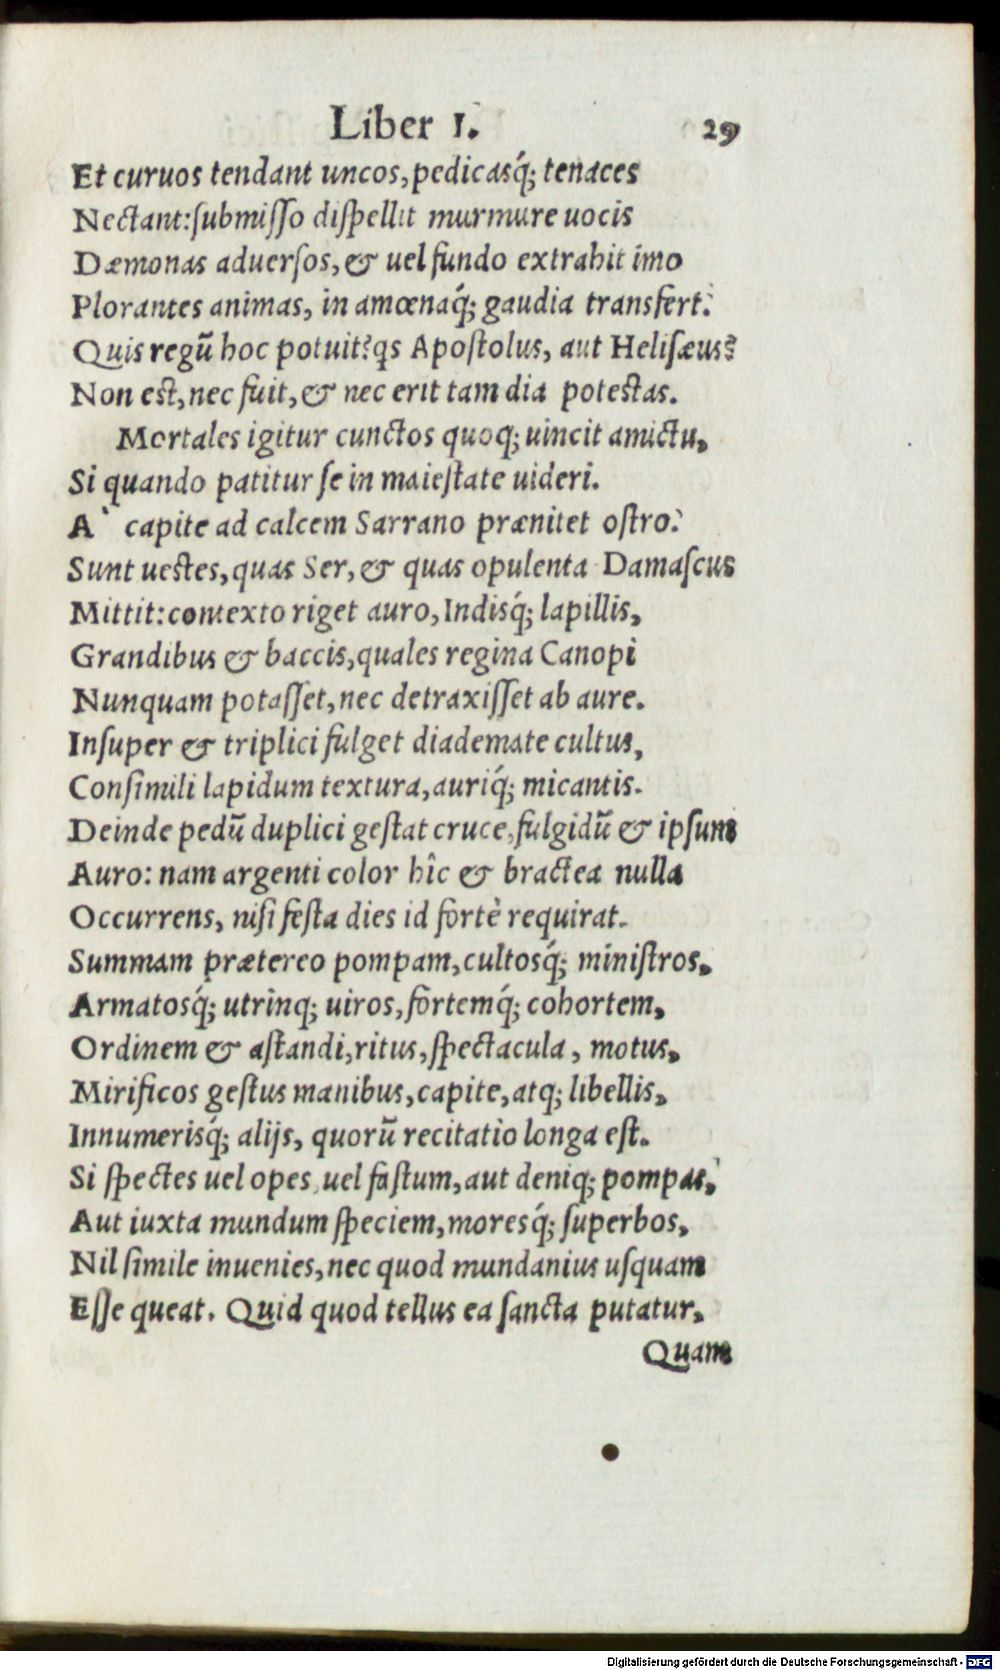 Liber I. 29
Et curuos tendant uncos, pedicasq́; tenaces
Nectant: ſubmiſſo diſpellit murmure uocis
Dæmonas aduerſos, & uel fundo extrahit imo
Plorantes animas, in amœnaq́; gaudia transfert.
Quis regũ hoc potuit? qs Apoſtolus, aut Heliſæus?
Non est, nec fuit, & nec erit tam dia potestas.
Mortales igitur cunctos quoq; uincit amictu,
Si quando patitur ſe in maieſtate uideri.
A' capite ad calcem Sarrano prænitet oſtro.
Sunt uestes, quas Ser, & quas opulenta Damaſcus
Mittit: contexto riget auro, Indisq́; lapillis,
Grandibus & baccis, quales regina Canopi
Nunquam potaſſet, nec detraxiſſet ab aure.
Inſuper & triplici fulget diademate cultus,
Conſimili lapidum textura, auriq́; micantis.
Deinde pedũ duplici geſtat cruce, fulgidũ & ipſum
Auro: nam argenti color hîc & bractea nulla
Occurrens, niſi feſta dies id fortè requirat.
Summam prætereo pompam, cultosq́; miniſtros,
Armatosq́; utrinq; uiros, fortemq́; cohortem,
Ordinem & aſtandi, ritus, ſpectacula, motus,
Mirificos geſtus manibus, capite, atq; libellis,
Innumerisq́; alijs, quorũ recitatio longa eſt.
Si ſpectes uel opes, uel faſtum, aut deniq; pompas,
Aut iuxta mundum ſpeciem, moresq́; ſuperbos,
Nil ſimile inuenies, nec quod mundanius uſquam
Eſſe queat. Quid quod tellus ea ſancta putatur,
Quam
Digitalisierung gefördert durch die Deutsche Forschungsgemeinschaft - DFG